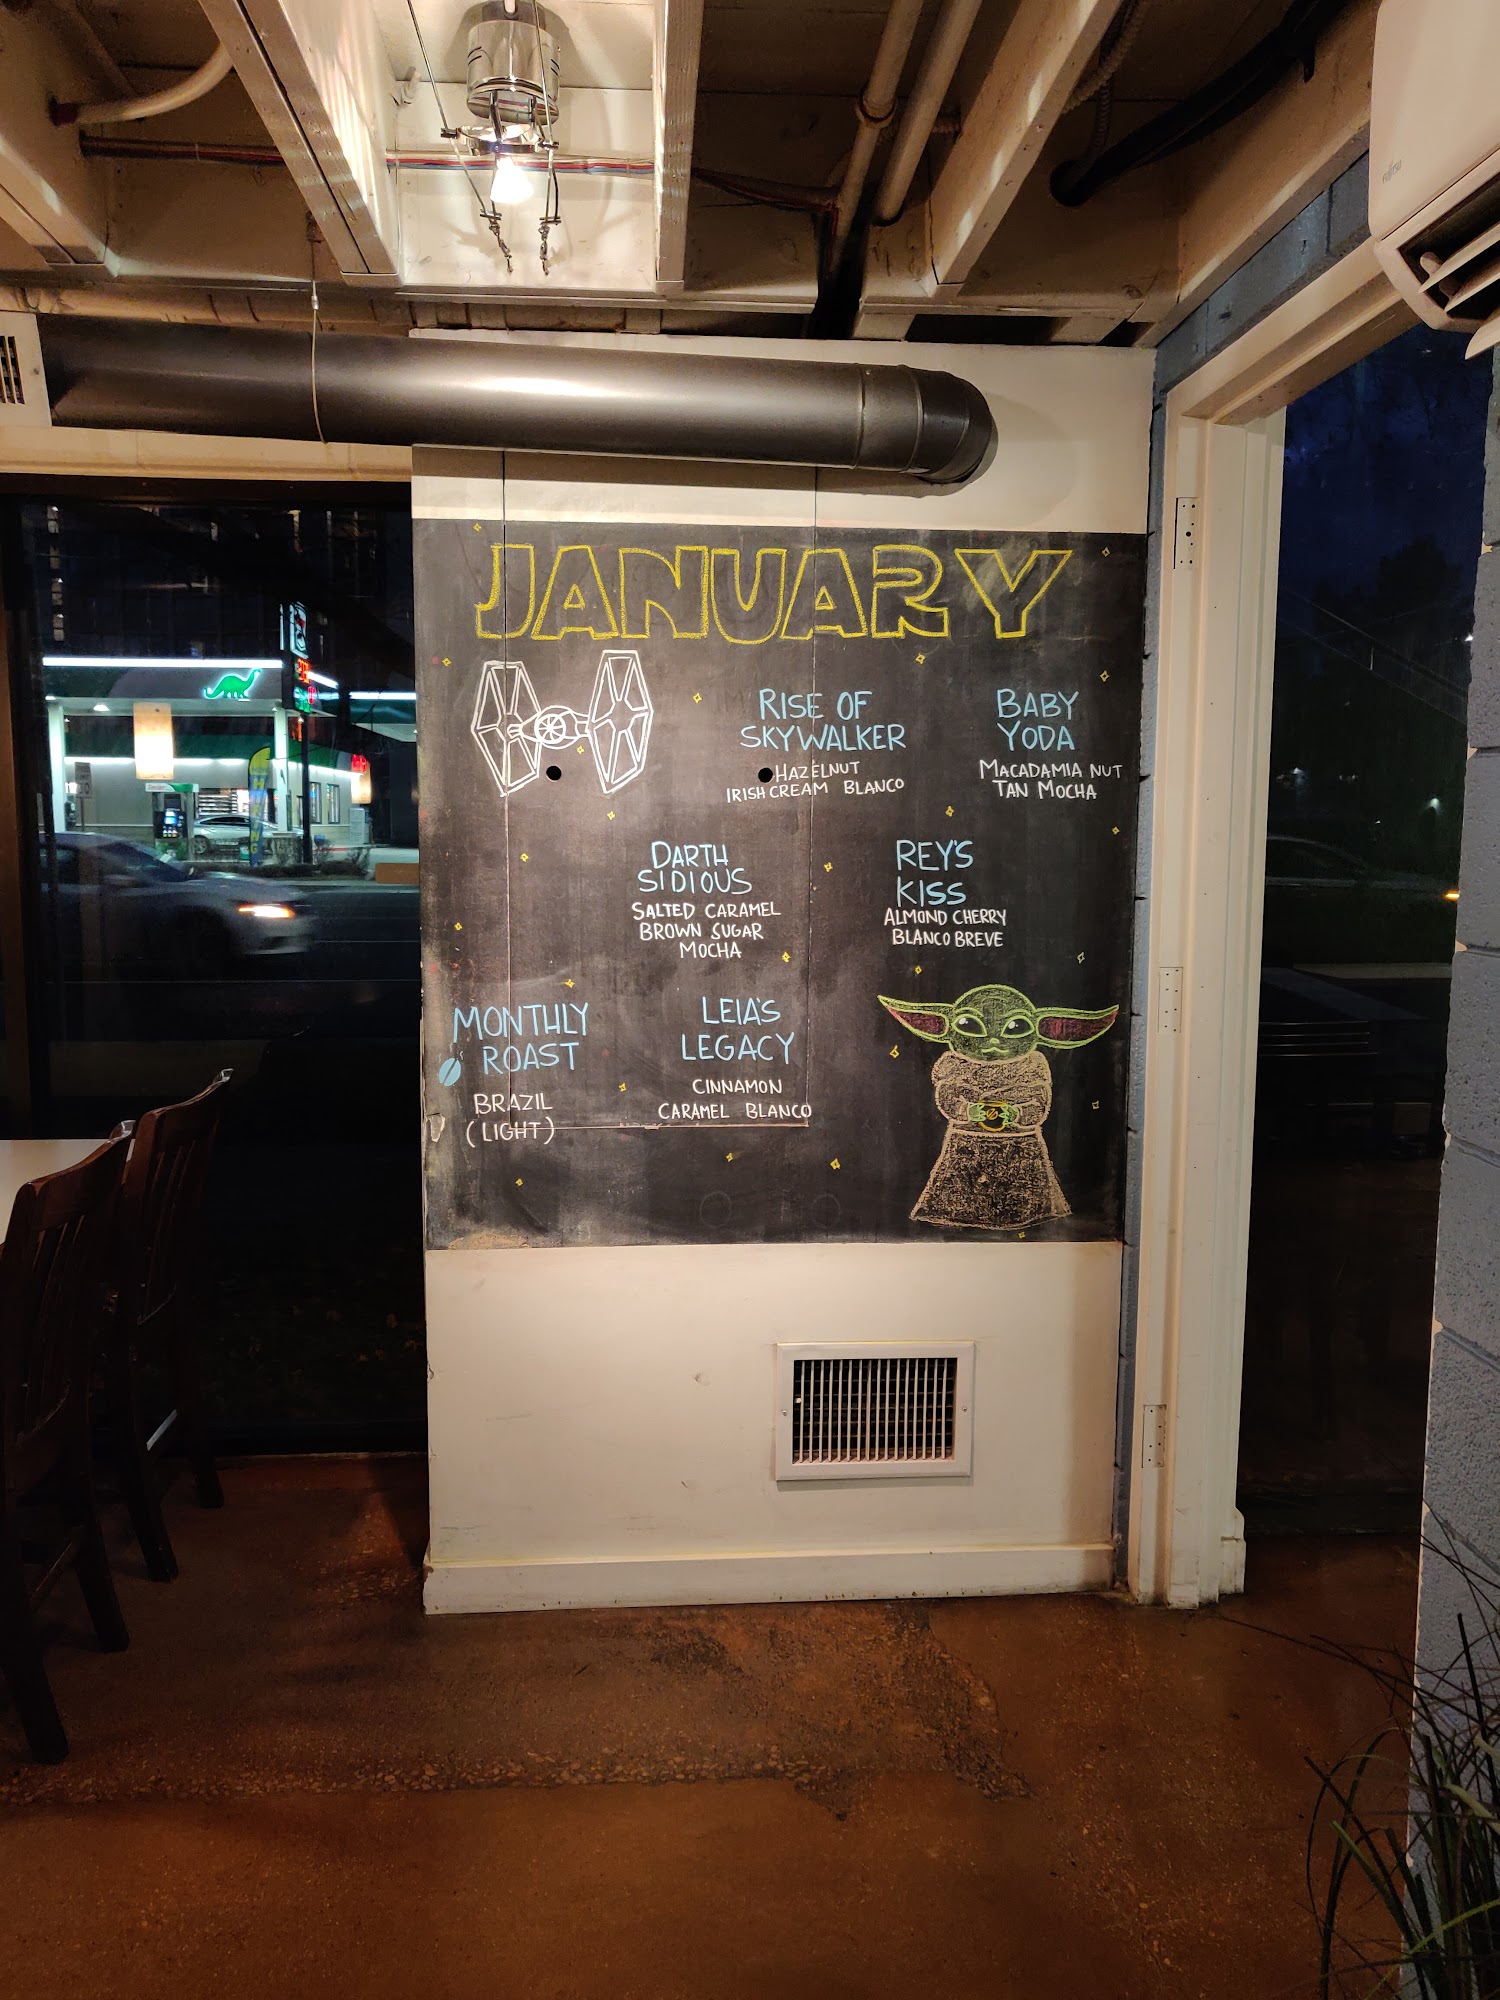 JANUARY
RISE OF
SKYWALKER
HAZELNUT
IRISH CREAM BLANCO
BABY
YODA
MACADAMIA NUT
TAN MOCHA
DARTH
SIDIOUS
SALTED CARAMEL
BROWN SUGAR
MOCHA
REY'S
KISS
ALMOND CHERRY
BLANCO BREVE
MONTHLY
ROAST
BRAZIL
(LIGHT)
LEIA'S
LEGACY
CINNAMON
CARAMEL BLANCO
FUJITSU